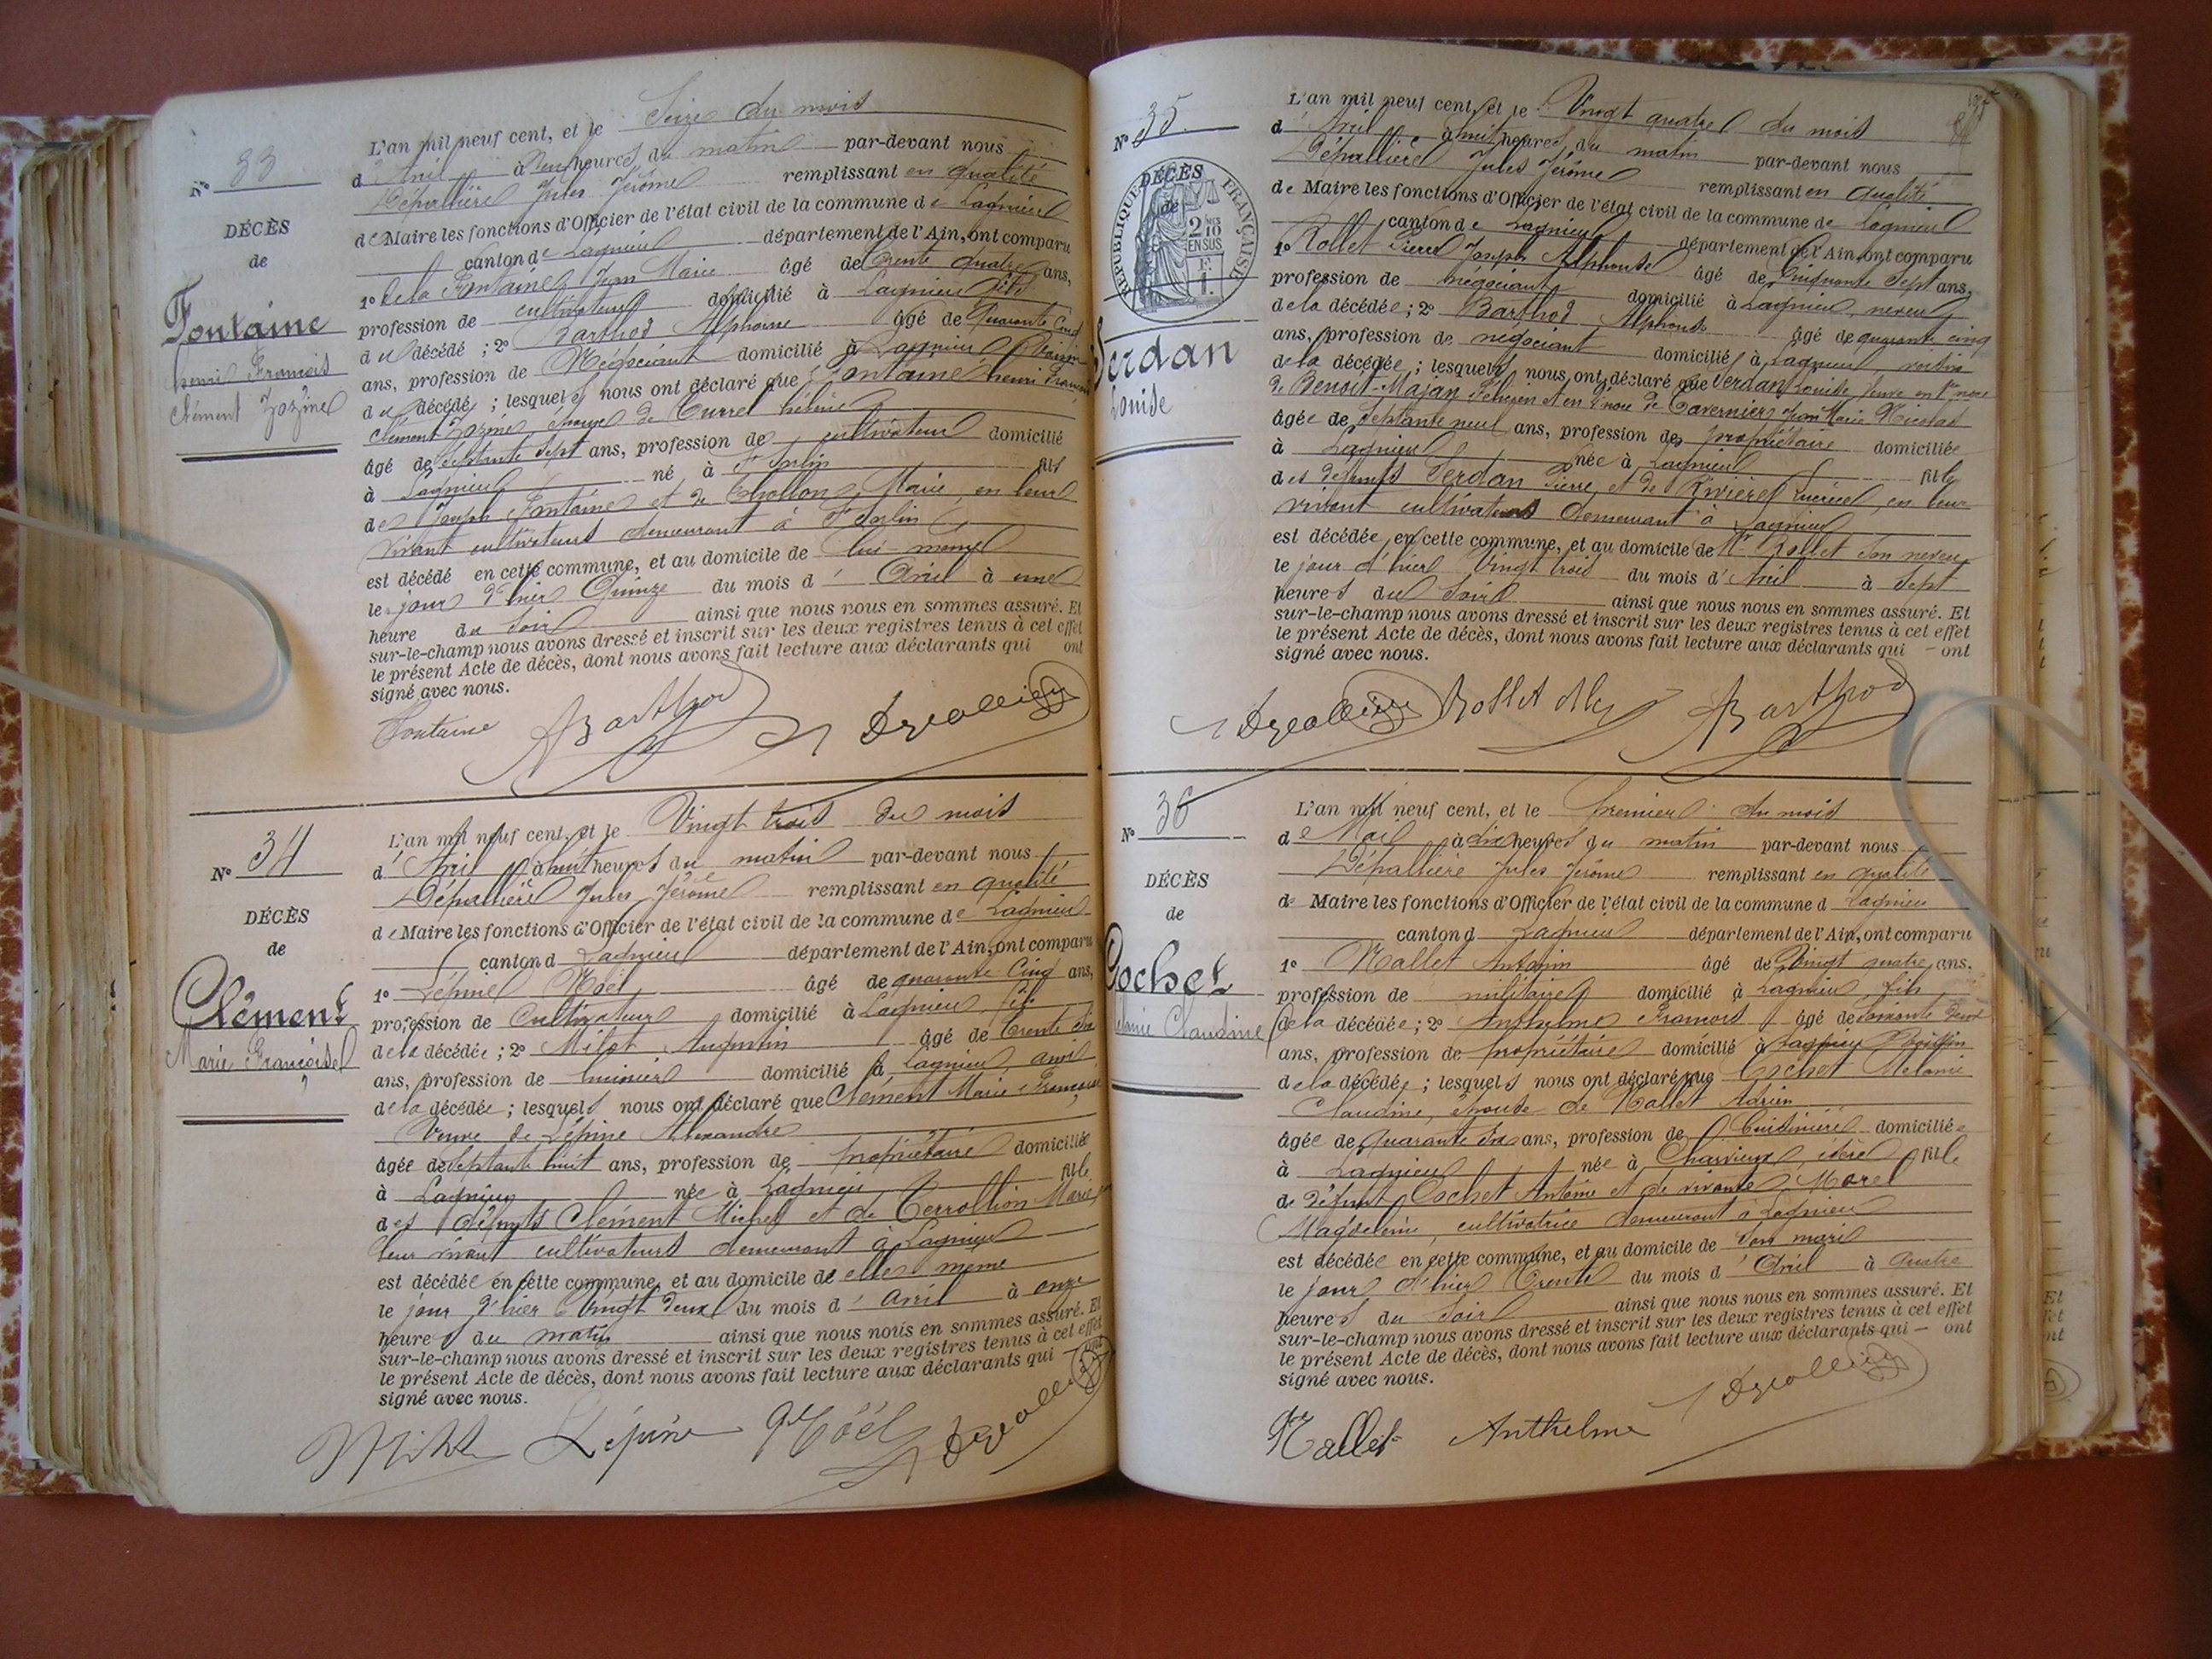 N° 33
DÉCÈS
de
Fontaine
henri François
Clément Zozime
L'an mil neuf cent, et le Seize du mois
d'Avril à heures du matin par-devant nous
Dépallière Jules Jérôme remplissant en qualité
de Maire les fonctions d'Officier de l'état civil de la commune de Lagnieu
canton de Lagnieu département de l'Ain, ont comparu
1° de la Fontaine Jean Marie âgé de trente quatre ans,
profession de cultivateur domicilié à Lagnieu fils
du décédé ; 2° Barthod Alphonse âgé de Quarante Cinq
ans, profession de Négociant domicilié à Lagnieu Voisin
du décédé ; lesquels nous ont déclaré que Fontaine henri François
Clément Zozime, époux de Curret hélène
âgé de Septante sept ans, profession de cultivateur domicilié
à Lagnieu né à St Sorlin fils
de Joseph Fontaine et de Chollon Marie, en leur
vivant cultivateurs demeurant à St Sorlin
est décédé en cette commune, et au domicile de lui même
le jour d'hier Quinze du mois d'Avril à une
heure du Soir ainsi que nous nous en sommes assuré. Et
sur-le-champ nous avons dressé et inscrit sur les deux registres tenus à cet effet
le présent Acte de décès, dont nous avons fait lecture aux déclarants qui ont
signé avec nous.
Fontaine ABarthod Dépallière
N° 34
DÉCÈS
de
Clément
Marie Françoise
L'an mil neuf cent, et le Vingt trois du mois
d'Avril à huit heures du matin par-devant nous
Dépallière Jules Jérôme remplissant en qualité
de Maire les fonctions d'Officier de l'état civil de la commune de Lagnieu
canton d Lagnieu département de l'Ain, ont comparu
1° Lépine Noël âgé de quarante Cinq ans,
profession de Cultivateur domicilié à Lagnieu, fils
de la décédée ; 2° Milot Augustin âgé de trente six
ans, profession de domicilié à Lagnieu, ami
de la décédée ; lesquels nous ont déclaré que Clément Marie Françoise
Veuve de Lépine Alexandre
âgée de Septante huit ans, profession de propriétaire domiciliée
à Lagnieu née à Lagnieu fille
des défunts Clément Michel et de Terrollion Marie
leur vivant cultivateurs demeurant à Lagnieu
est décédée en cette commune, et au domicile de elle même
le jour d'hier Vingt deux du mois d'Avril à onze
heures du matin ainsi que nous nous en sommes assuré. Et
sur-le-champ nous avons dressé et inscrit sur les deux registres tenus à cet effet
le présent Acte de décès, dont nous avons fait lecture aux déclarants qui ont
signé avec nous.
Milot Lépine Noël Dépallière
N° 35
DÉCÈS
de
RÉPUBLIQUE FRANÇAISE
2/10 EN SUS
Verdan
Louise
L'an mil neuf cent, et le Vingt quatre du mois
d'Avril à huit heures du matin par-devant nous
Dépallière Jules Jérôme remplissant en qualité
de Maire les fonctions d'Officier de l'état civil de la commune de Lagnieu
canton de Lagnieu département de l'Ain, ont comparu
1° Rollet Pierre Joseph Alphonse âgé de Cinquante Sept ans,
profession de négociant domicilié à Lagnieu, neveu
de la décédée ; 2° Barthod Alphonse âgé de quarante cinq
ans, profession de négociant domicilié à Lagnieu, voisin
de la décédée ; lesquels nous ont déclaré que Verdan Louise, Veuve en 1re noce
de Benoit-Majan Félicien et en 2e noce de Tavernier Jean Marie Nicolas
âgée de Septante neuf ans, profession de propriétaire domiciliée
à Lagnieu née à Lagnieu fille
des défunts Verdan Pierre, et de Rivière Lucrèce, en leur
vivant cultivateurs demeurant à Lagnieu
est décédée en cette commune, et au domicile de Mr Rollet Son neveu
le jour d'hier Vingt trois du mois d'Avril à Sept
heures du Soir ainsi que nous nous en sommes assuré. Et
sur-le-champ nous avons dressé et inscrit sur les deux registres tenus à cet effet
le présent Acte de décès, dont nous avons fait lecture aux déclarants qui ont
signé avec nous.
Dépallière Rollet Alp ABarthod
N° 36
DÉCÈS
de
Cochet
Mélanie Claudine
L'an mil neuf cent, et le Premier du mois
de Mai à dix heures du matin par-devant nous
Dépallière Jules Jérôme remplissant en qualité
de Maire les fonctions d'Officier de l'état civil de la commune d Lagnieu
canton d Lagnieu département de l'Ain, ont comparu
1° Mallet Antonin âgé de Vingt quatre ans.
profession de militaire domicilié à Lagnieu, fils
de la décédée ; 2° Anthelme François âgé de Soixante deux
ans, profession de propriétaire domicilié à Lagnieu Voisin
de la décédée ; lesquels nous ont déclaré que Cochet Mélanie
Claudine, épouse de Mallet Adrien
âgée de Quarante six ans, profession de Cuisinière domiciliée
à Lagnieu née à Charvieux, isère fille
de défunt Cochet Antoine et de vivante Morel
Magdeleine, cultivatrice demeurant à Lagnieu
est décédée en cette commune, et au domicile de son mari
le jour d'hier Trente du mois d'Avril à quatre
heures du Soir ainsi que nous nous en sommes assuré. Et
sur-le-champ nous avons dressé et inscrit sur les deux registres tenus à cet effet
le présent Acte de décès, dont nous avons fait lecture aux déclarants qui ont
signé avec nous.
Mallet Anthelme Dépallière